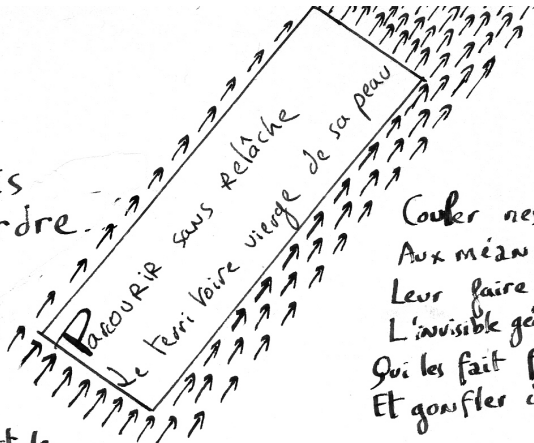 Parcourir sans relâche
Le territoire vierge de sa peau
Couler
Aux
Leur faire
L'invisible
Qui les fait
Et gonfler